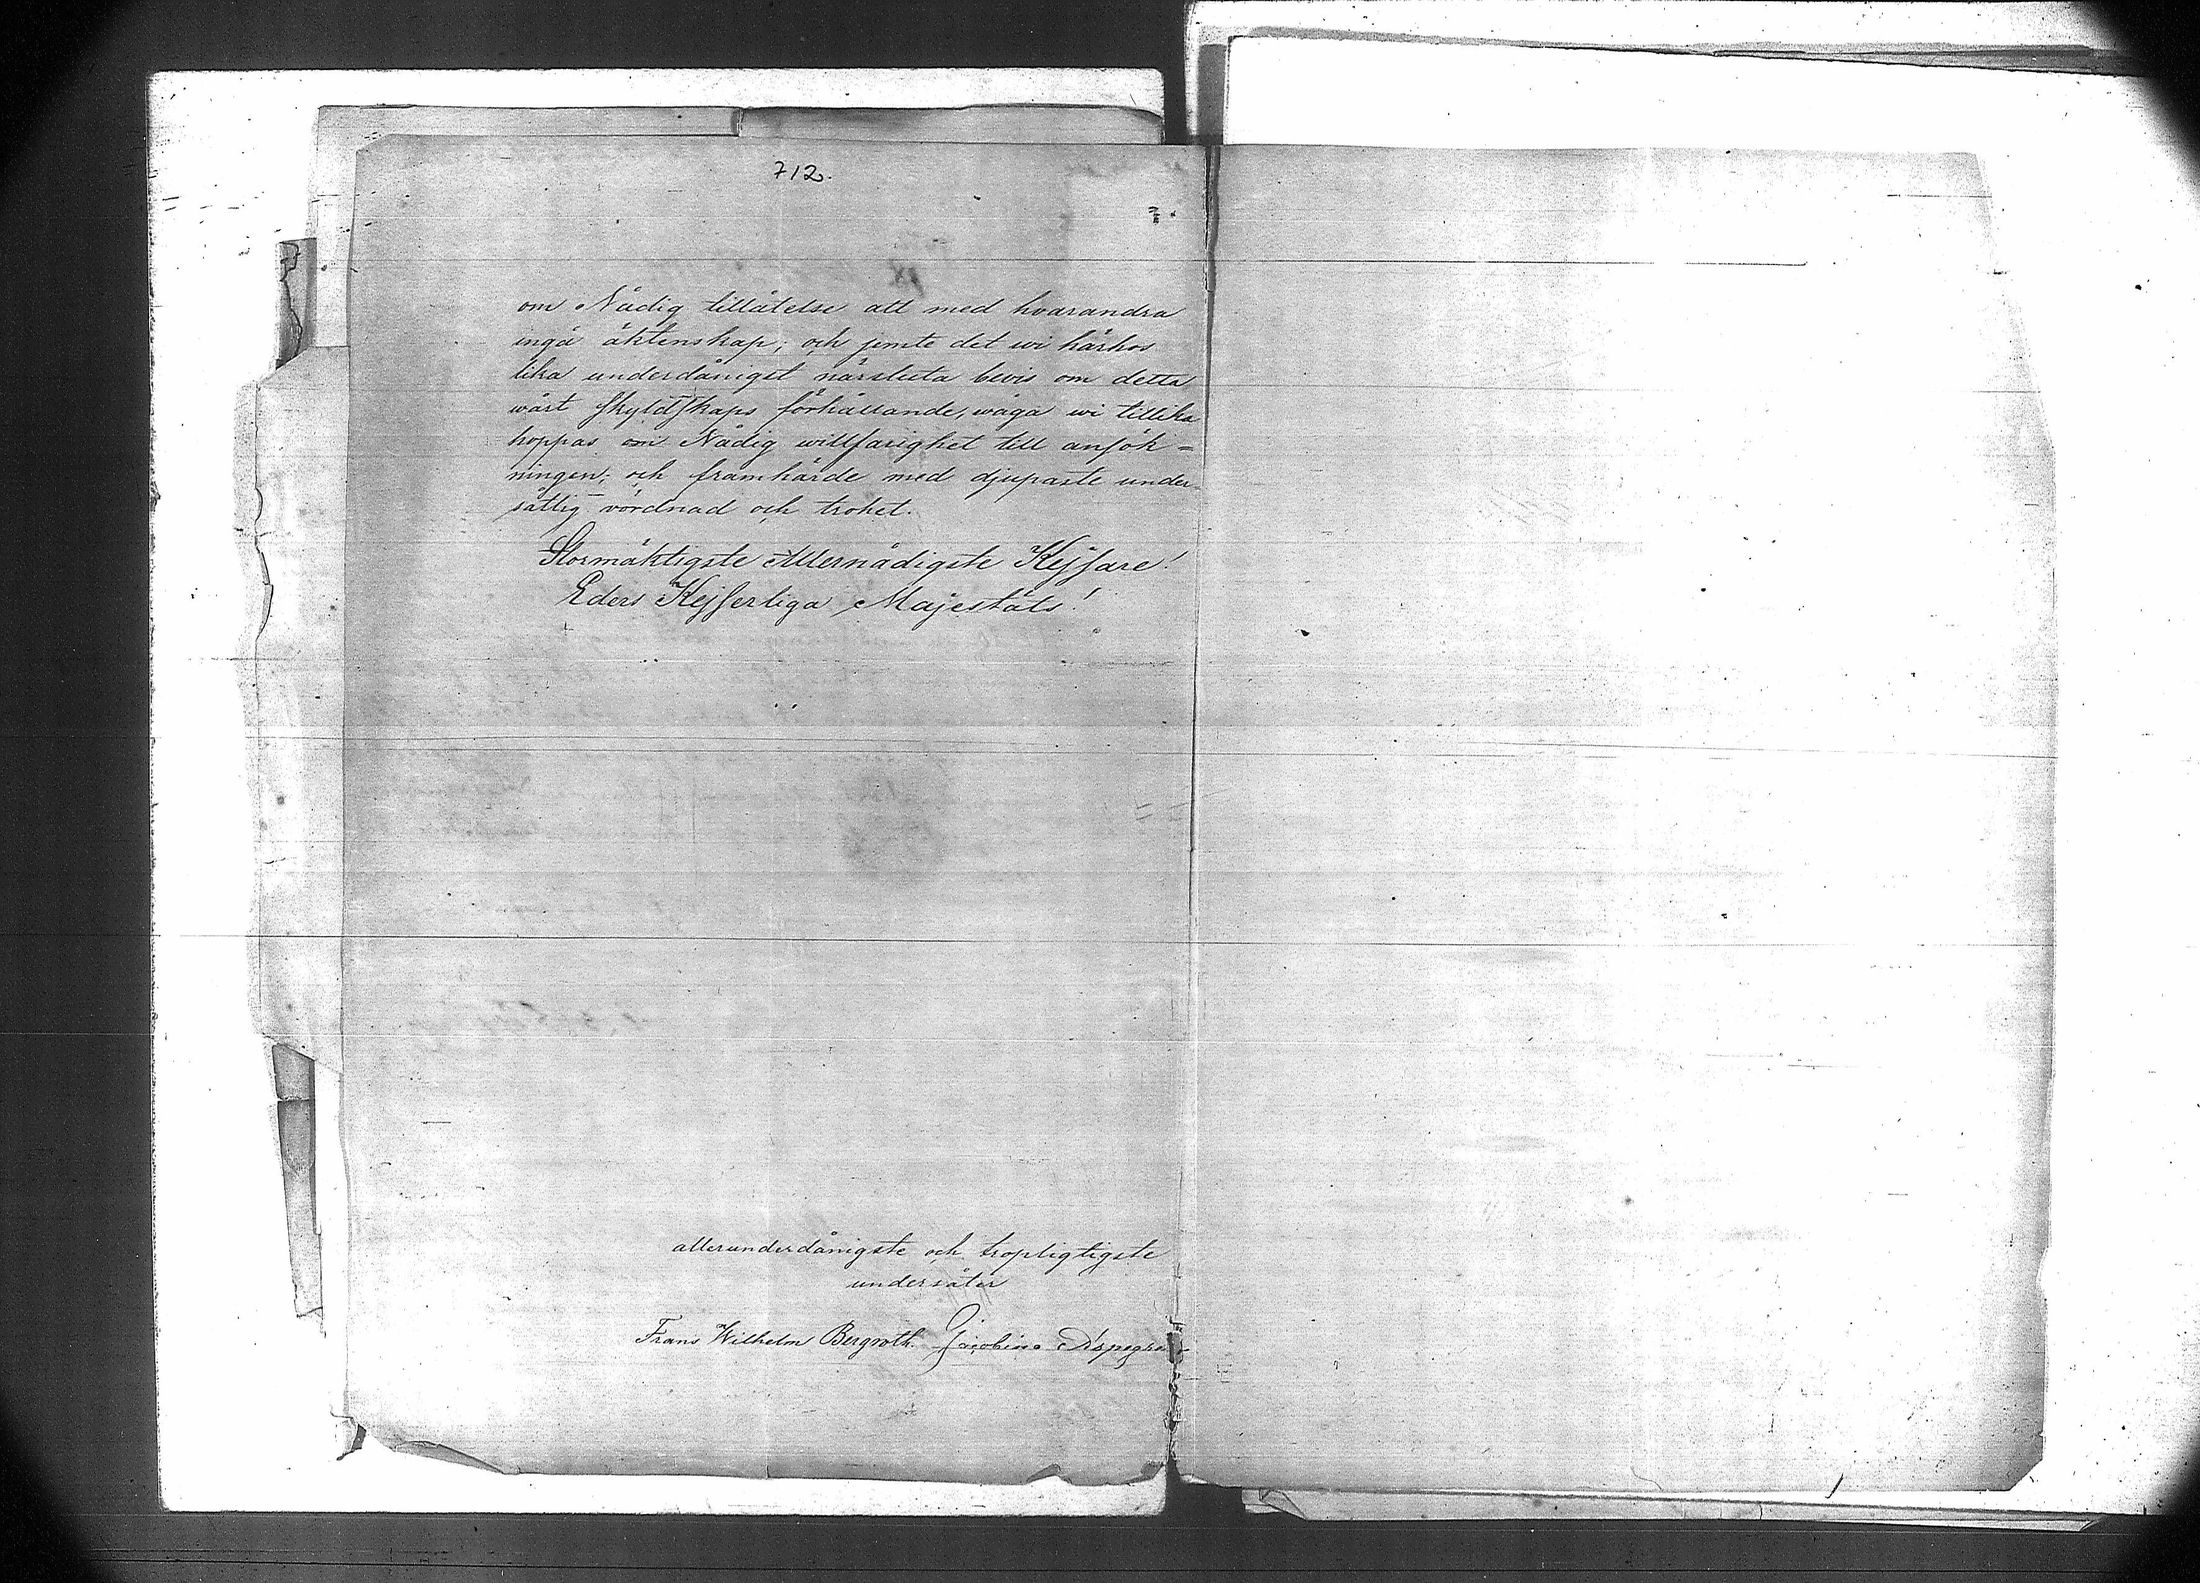 712.
om Nådig tillåtelse att med hvarandra
ingå äktenskap; och jemte det wi härhos
lika underdånigst närsluta bevis om detta
wårt skyldskaps förhållande, wåga wi tillika
hoppas om Nådig willfarighet till ansök=
ningen, och framhärde med djupaste under-
såttig vördnad och trohet.
Stormäktigste Allernådigste Kejsare!
Eders Kejserliga Majestäts!
allerunderdånigste och tropligtigste
undersåter
Frans Wilhelm Bergroth. Jacobina